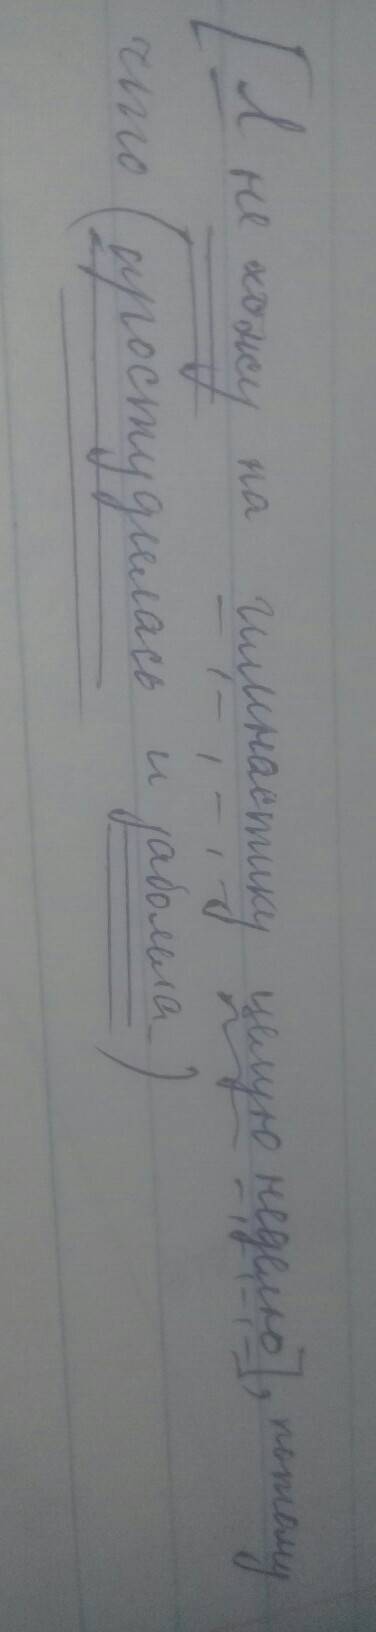 [Я не хожу на гимнастику целую неделю], потому
что (простудилась и заболела)